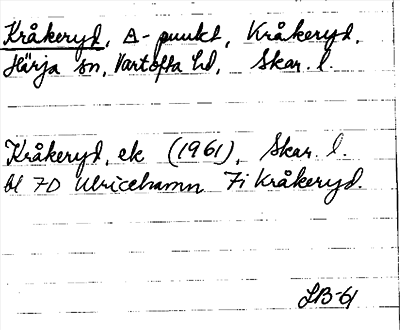 Kråkeryd, Δ-punkt, Kråkeryd,
Härja sn, Vartofta hd, Skar. l.
Kråkeryd, ek (1961), Skar. l.
bl 7D Ulricehamn 7i Kråkeryd.
LB-61